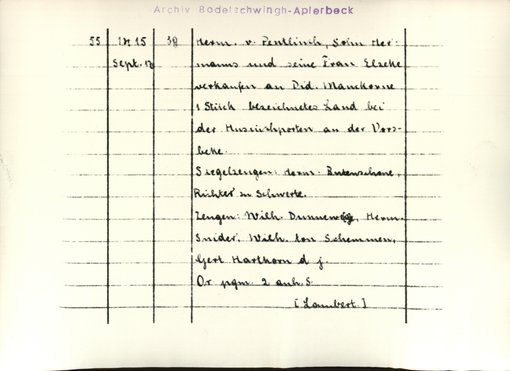 Archiv Bodelschwingh-Aplerbeck
55 1415 38 Herm. v. Pentlinch, Sohn Her-
Sept. 12 manns und seine Frau Elseke
verkaufen an Did. Manckorne
1 Stück bezeichnetes Land bei
der Husinchporten an der Vors-
beke.
Siegelzeugen: Herm. Butenschone,
Richter zu Schwerte.
Zeugen: Wilh. Dunneweg, Herm.
Snider, Wilh. ton Schemmen,
Gert Harthorn d j.
Or pgm. 2 anh. S.
[Lambert.]